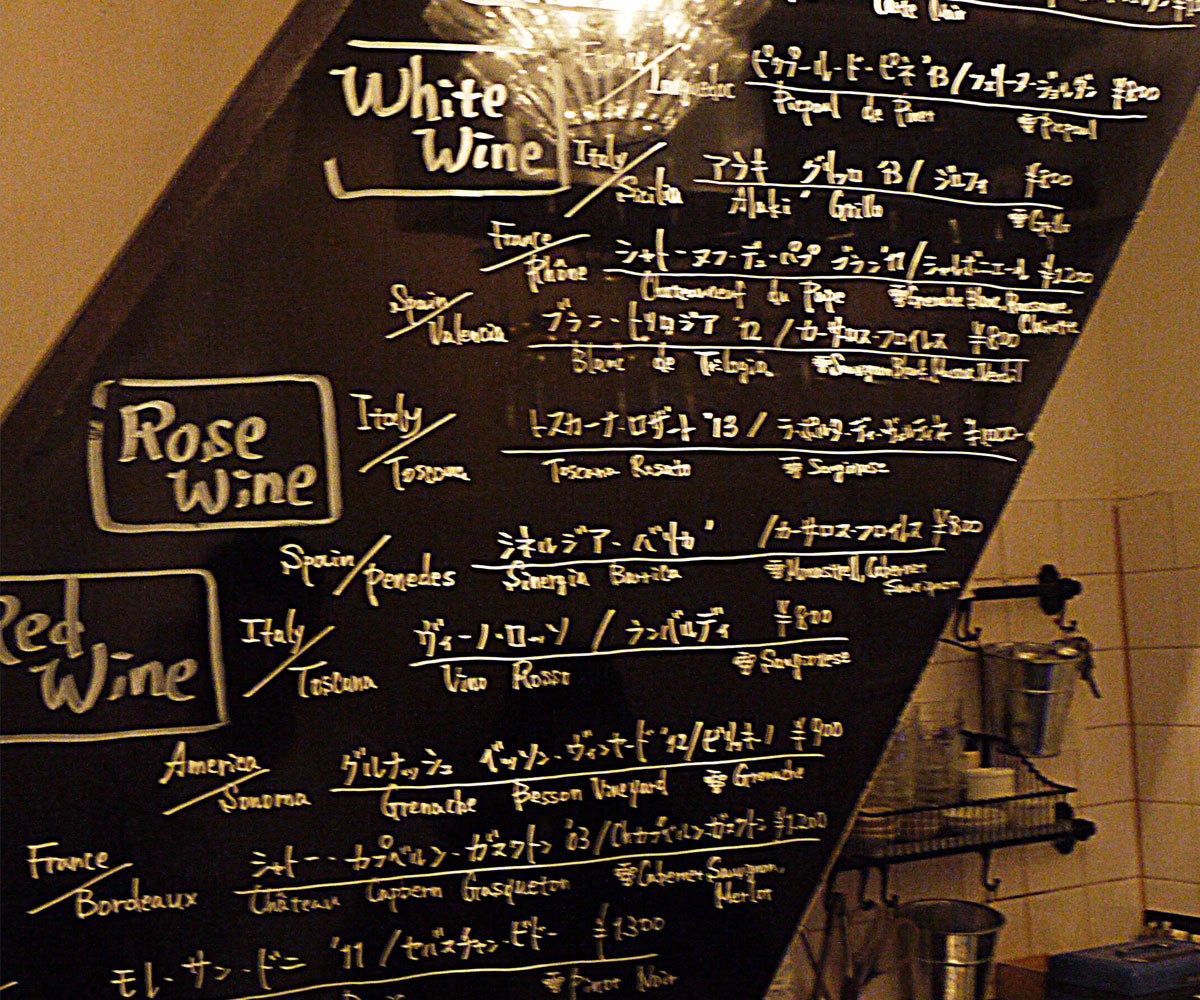 White
Wine
France
Languedoc
ピクプール・ド・ピネ '13/フェリーヌ・ジュルダン ¥800
Picpoul de Pinet Picpoul
Italy
Sicilia
アラキ グリッロ '13/ ジルフィ ¥800
Alaki Grillo Grillo
France
Rhône
シャトーヌフ・デュ・パプ ブラン '11/シャルボニエール ¥1200
Chateauneuf du Pape Grenache Blanc, Roussanne,
Clairette
Spain
Valencia
ブラン・トリロジア '12 /カーサロス・フロイレス ¥800
Blanc de Trilogia
Rose
Wine
Italy
Toscana
トスカーナ・ロザート '13 / ラ・ポルタ・ディ・ヴェルティネ ¥1000-
Toscana Rosato Sangiovese
Red
Wine
Spain
Penedes
シネルジア・バリカ /カーサロス・フロイレス ¥800
Sinergia Barrica Monastrell, Cabernet
Sauvignon
Italy
Toscana
ヴィーノ・ロッソ / ランバルディ ¥800
Vino Rosso Sangiovese
America
Sonoma
グルナッシュ ベッソン・ヴィンヤード '12/ビリキーノ ¥900
Grenache Besson Vineyard Grenache
France
Bordeaux
シャトー・カプベルン・ガスクトン '03/Chカプベルンガスクトン ¥1200
Château Capbern Gasqueton Cabernet Sauvignon,
Merlot
モレ・サン・ドニ '11 /セバスチャン・ビドー ¥1300
Pinot Noir